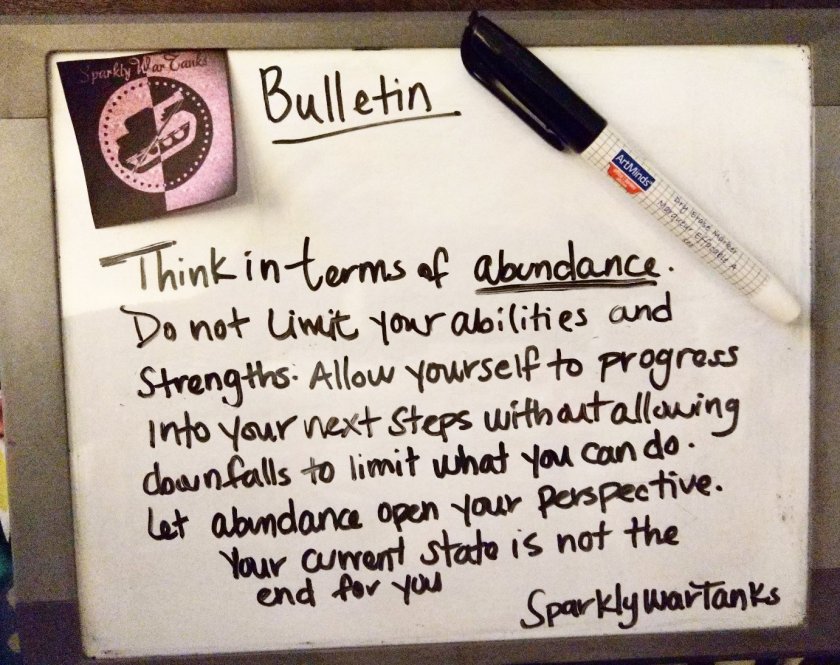 Sparkly War Tanks
Bulletin
ArtMinds
Dry Erase Marker
Think in terms of abundance.
Do not limit your abilities and
Strengths. Allow yourself to progress
into your next steps without allowing
downfalls to limit what you can do.
Let abundance open your perspective.
Your current state is not the
end for you
SparklyWarTanks